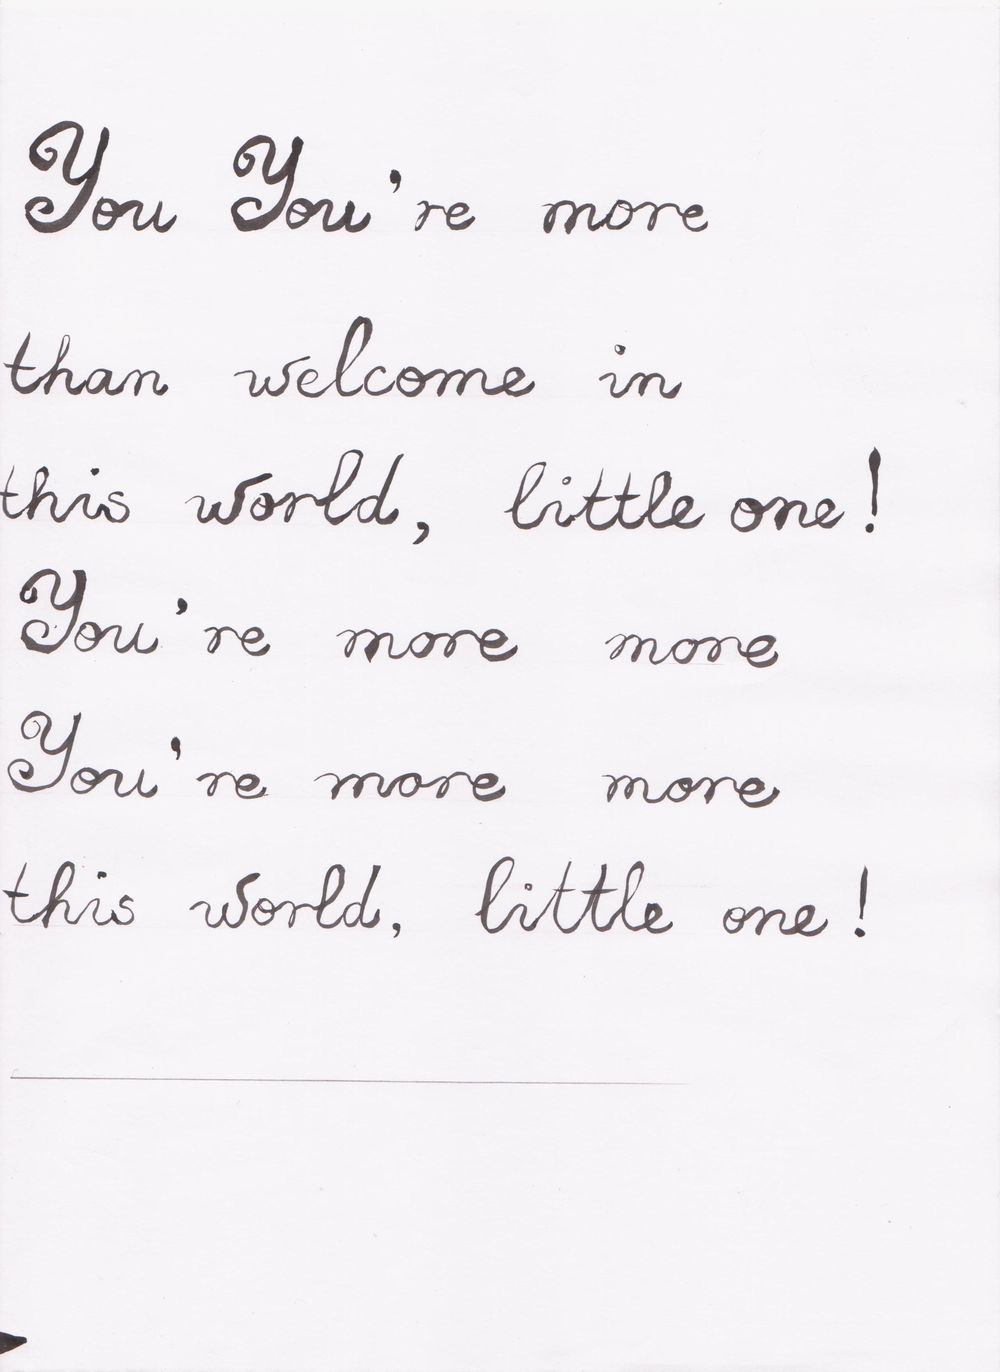 You You're more
than welcome in
this world, little one!
You're more more
You're more more
this world, little one!